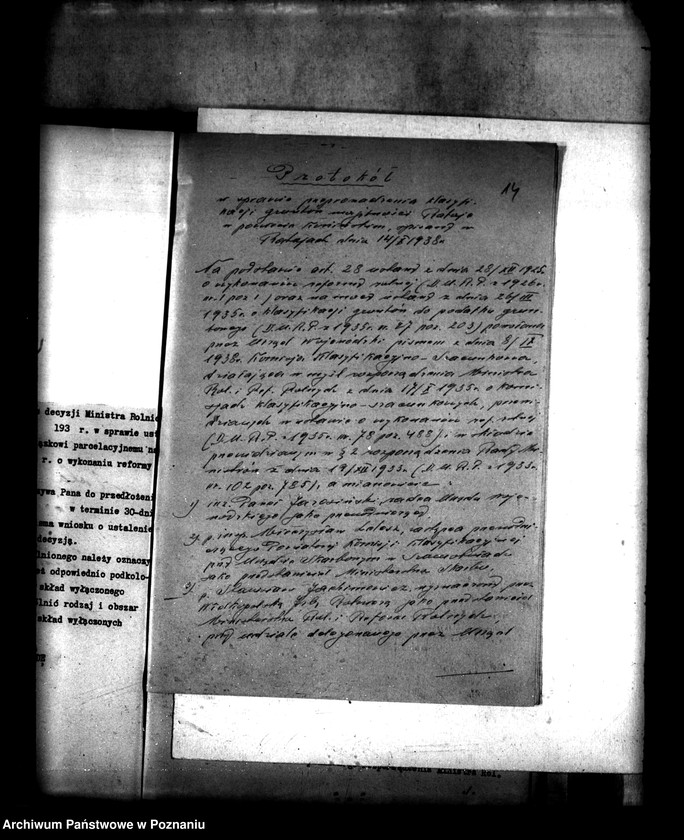 14
Protokół
w sprawie przeprowadzenia klasyfi-
kacji gruntów majętności Rataje
w powiecie
Ratajach dnia 14/X 1938r.
Na podstawie art. 28 ustawy z dnia 28/XII 1925r.
o wykonaniu reformy rolnej (D.U.R.P. z 1926r.
nr. 1 poz. 1) oraz na mocy ustawy z dnia 26/III
1935r. o klasyfikacji gruntów do podatku grun-
towego (D.U.R.P. z 1935r. nr. 27 poz. 203)
przez Urząd Wojewódzki pismem z dnia 8/IX
1938r. Komisja Klasyfikacyjno-Szacunkowa
działająca w myśl rozporządzenia Ministra
Rol. i Ref. Rolnych z dnia 17/X 1935r. o komi-
sjach klasyfikacyjno-szacunkowych, przewi-
dzianych w ustawie o wykonaniu ref. rolnej
(D.U.R.P. z 1935r. nr. 78 poz. 488), w składzie
przewidzianym w § 2 rozporządzenia Rady Mi-
nistrów z dnia 19/XII 1933r. (D.U.R.P. z 1933r.
nr. 102 poz. 785), a mianowicie:
1) inż. radca Urzędu Woje-
wódzkiego jako przewodniczący
2) p. inż. Mieczysław
Komisji Klasyfikacyjnej
przy Urzędzie Skarbowym w
jako przedstawiciel Ministerstwa Skarbu,
3) p. Stanisław wyznaczony przez
Wielkopolską Izbę Rolniczą jako przedstawiciel
Ministerstwa Rol. i Reform Rolnych,
przy udziale delegowanego przez Urząd
decyzji Ministra Rolnic
193 r. w sprawie ust
ązkowi parcelacyjnemu na
r. o wykonaniu reformy
zywa Pana do przedłożeni
w terminie 30-dni
wniosku o ustalenie
decyzją.
lnionego należy oznaczy
eż odpowiednio podkolo-
skład wyłączonego
rodzaj i obszar
skład wyłączonych
Ministra Rol.
Archiwum Państwowe w Poznaniu